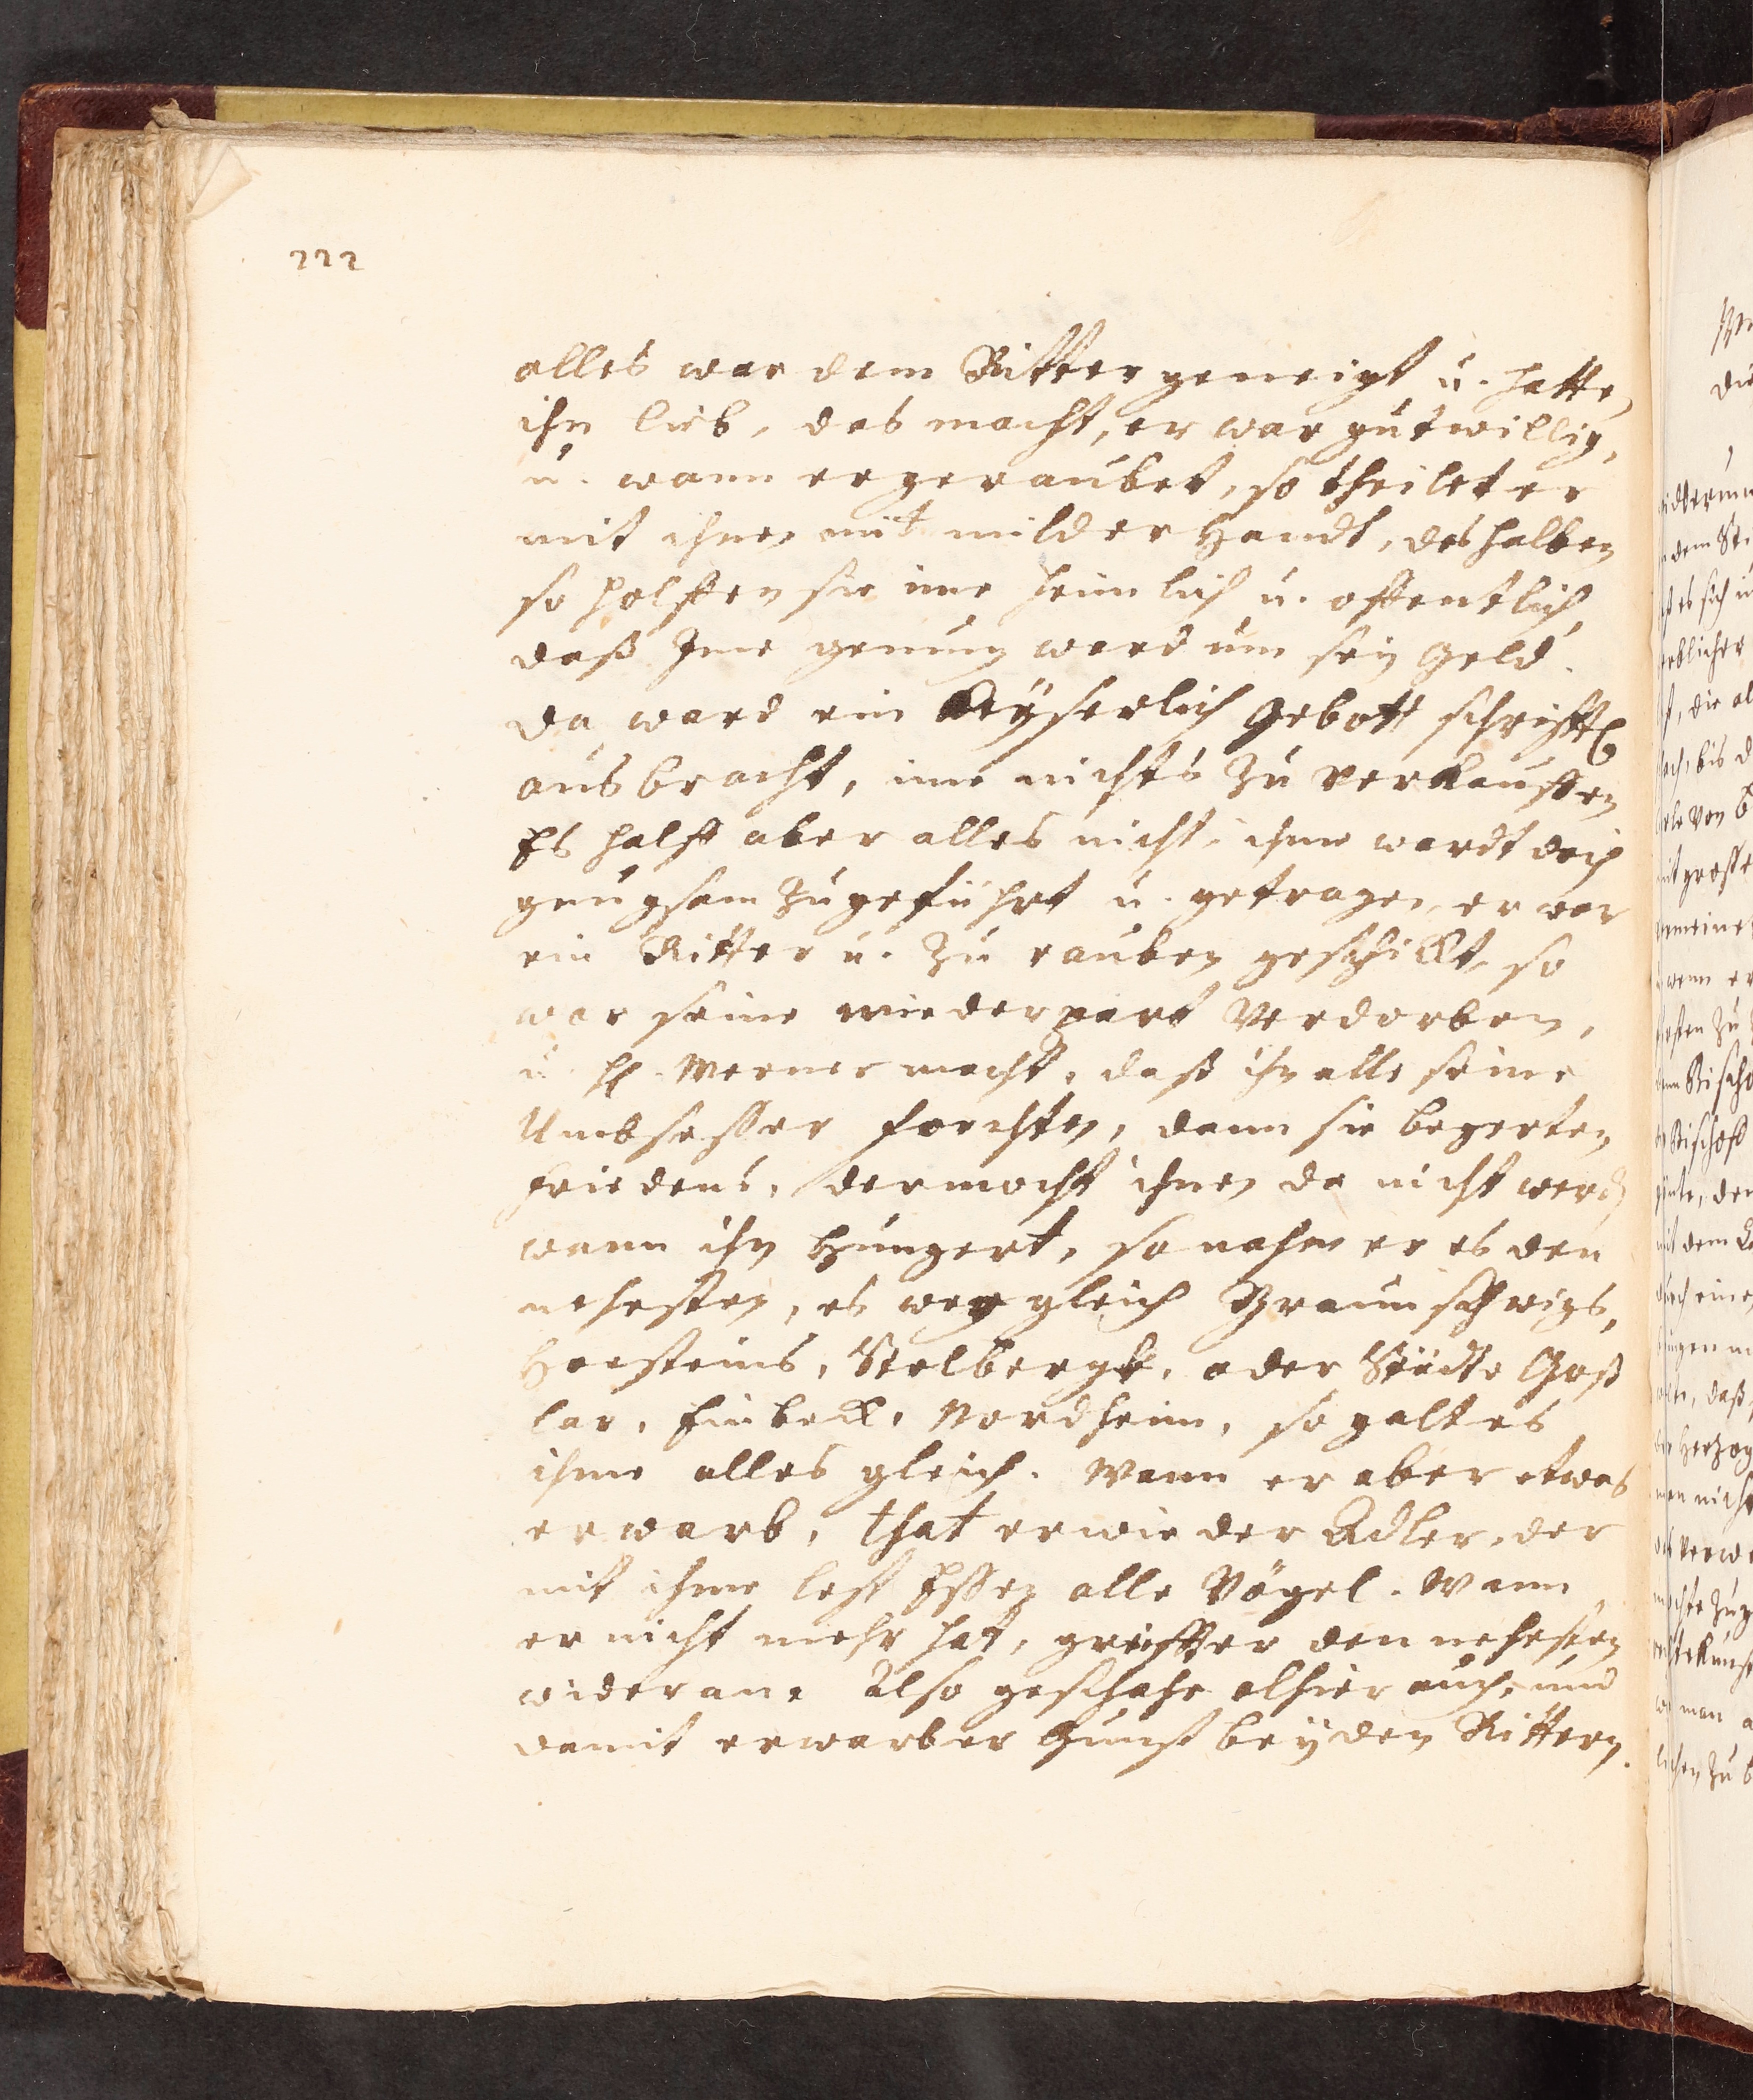 222
alles war dem Ritter geneigt u. hatte
ihn lieb, das macht, er war gutwillig,
u. wann er geraubet, so theilet er
mit ihnen mit milder Handt, deshalben
so holffen sie ime heimlich u. offentlich,
daß Jme genung ward um sein Geld.
Da ward ein Keyserlich Gebott schrifftl.
ausbracht, ime nichts zu verkauffen
Es halff aber alles nicht, ihme wardt doch
gnugsam zugeführt u. getragen, er war
ein Ritter u. zu rauben geschickt, so
war seine wiederpart verdorben,
u. H. Werner macht, daß ihn alle seine
Umbsesser forchten, dann sie begerten
friedens, der mocht ihnen da nicht werd
wann ihn Hungert, so nahm er es den
nehesten, es wer gleich Braunschwigs,
Honsteins, Stolbergk, oder Städte Goß
lar, Einbeck, Nordheim, so galt es
ihme alles gleich. Wann er aber etwas
erwarb, that er wie der Adler, der
mit ihme lest Essen alle Vögel. Wann
er nicht mehr hat, greifft er den nehesten
wider an. Also geschahe alhier auch, und
damit erwarb er Gunst bey den Rittern.